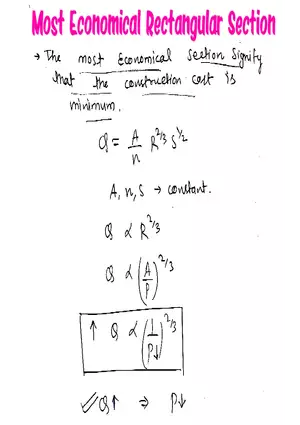 Most Economical Rectangular Section
→ The most Economical section signify
that the construction cost is
minimum.
Q = A/n R^2/3 S^1/2
A, n, S → constant.
Q ∝ R^2/3
Q ∝ (A/P)^2/3
↑ Q ∝ (1/P↓)^2/3
✓Q↑ ⇒ P↓